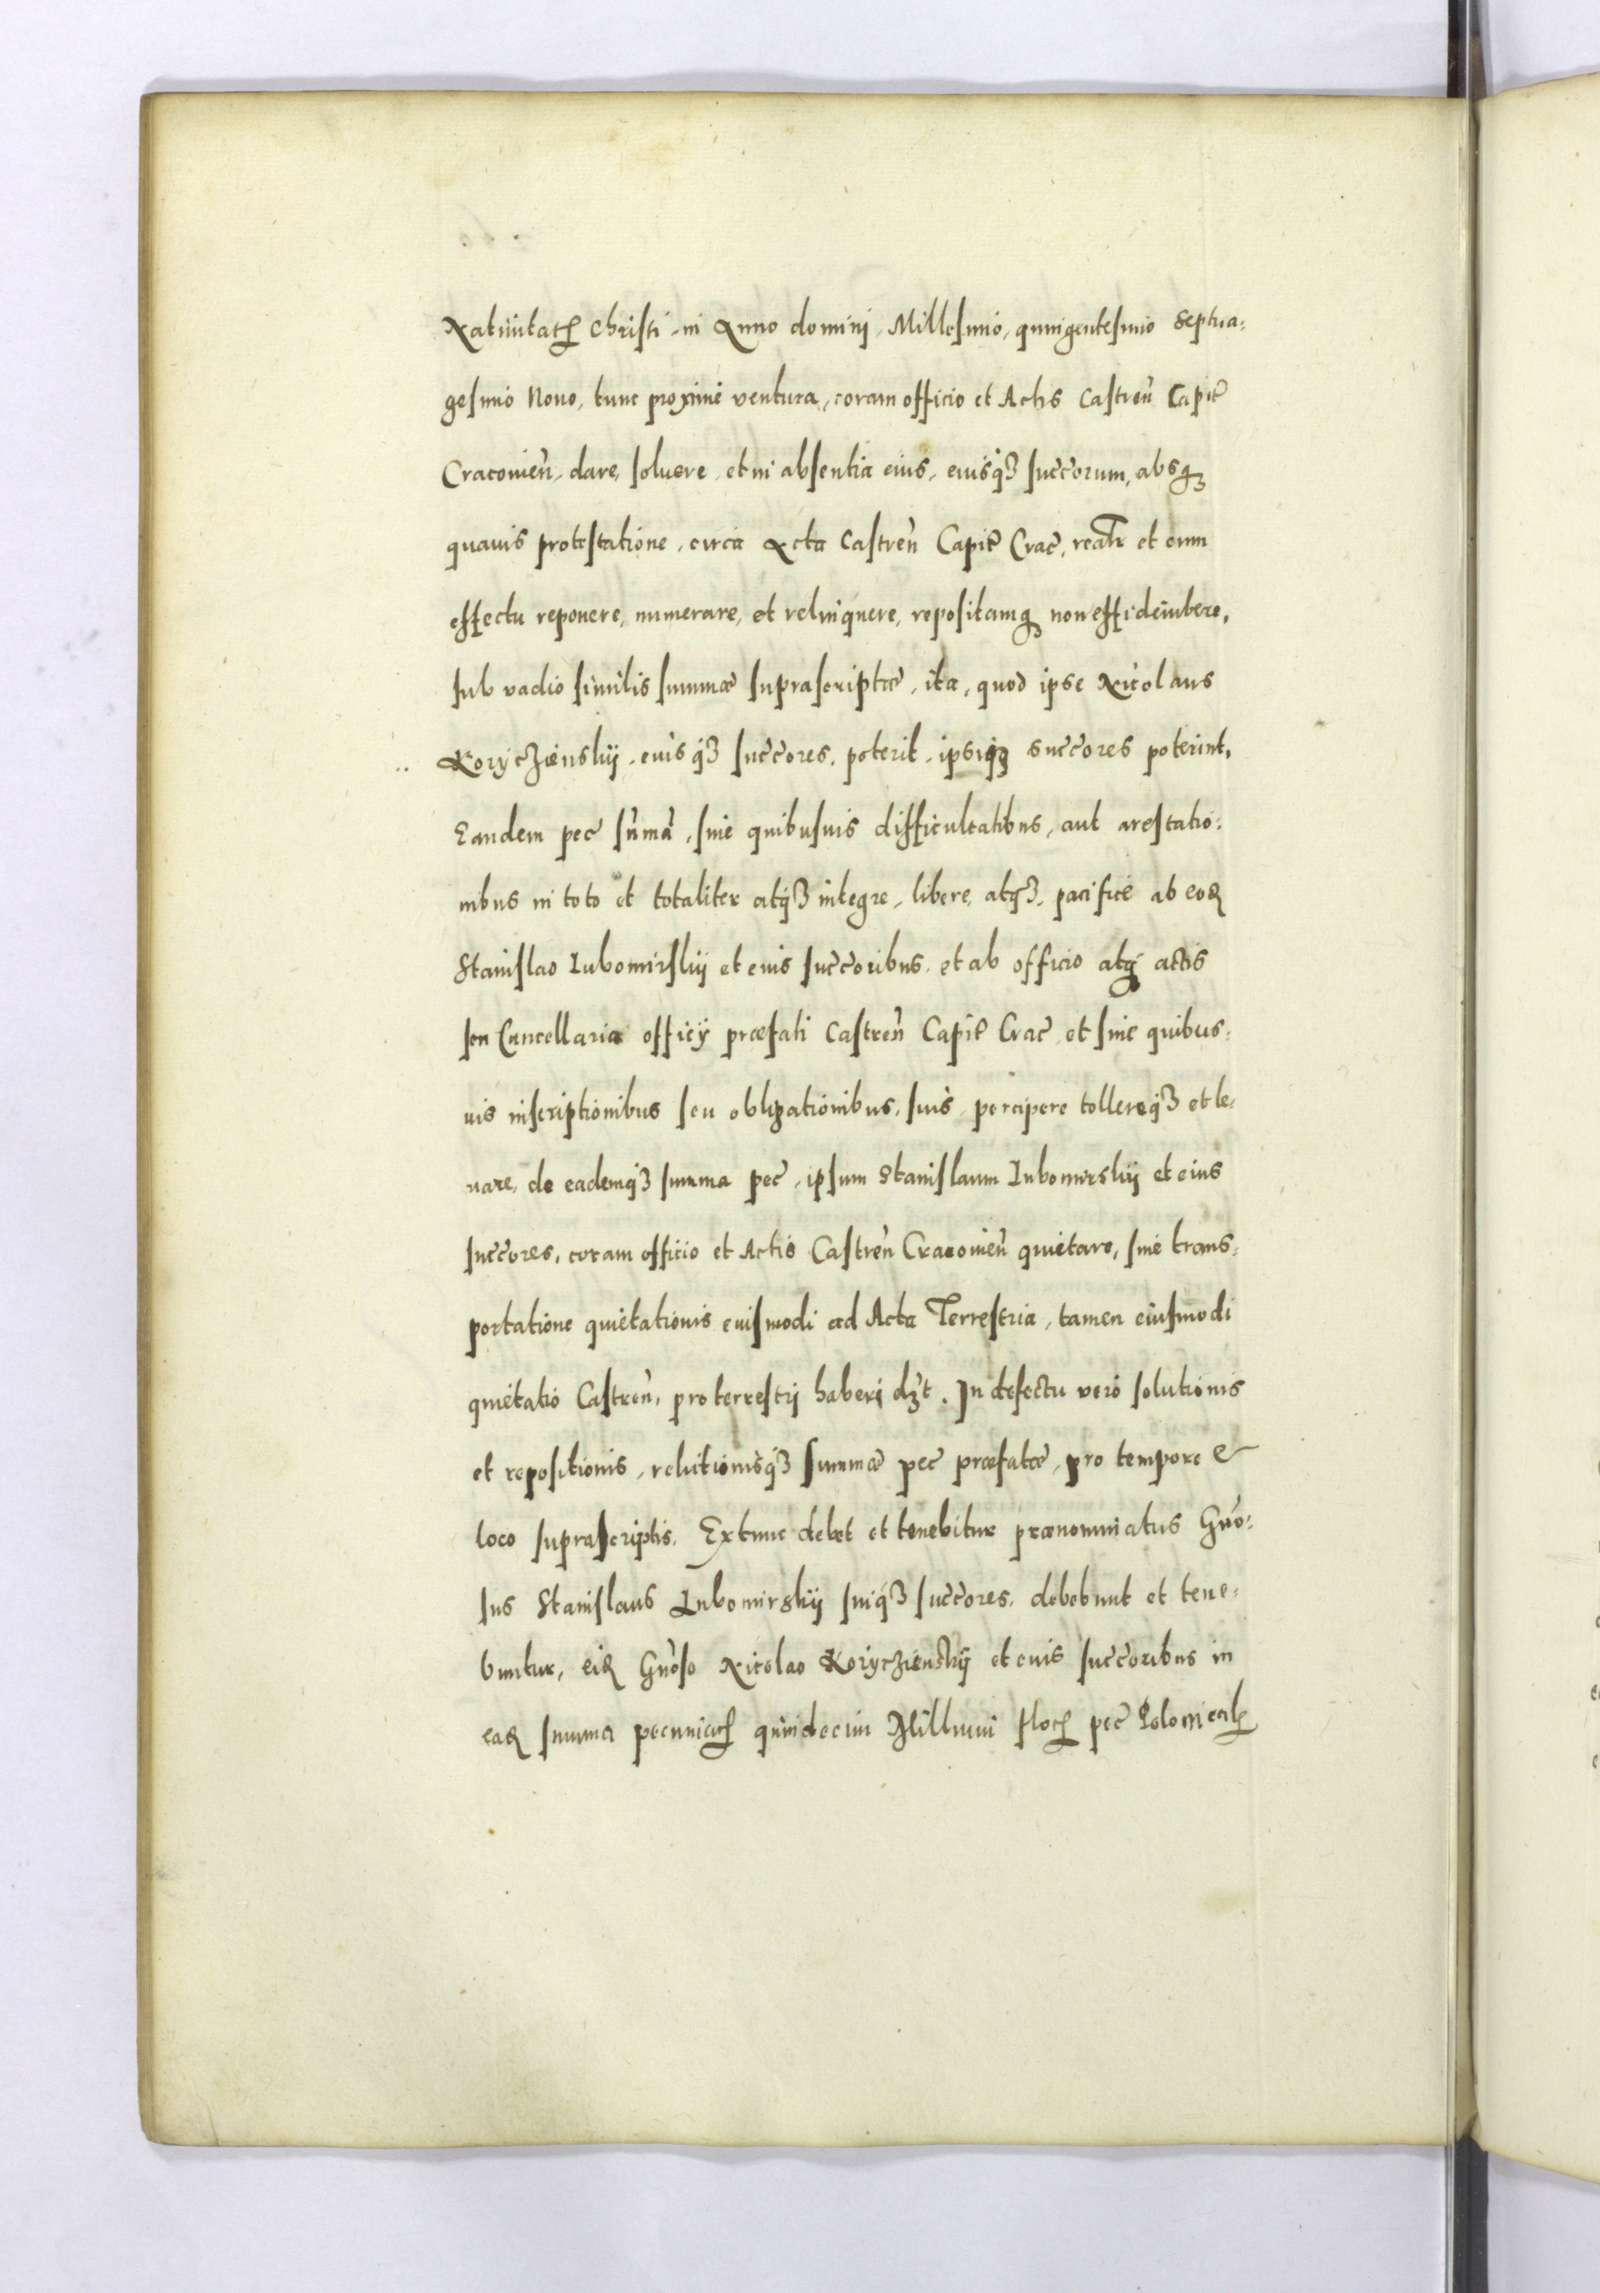 Natiuitatis Christi, in Anno domini, Millesimo, quingentesimo Septua:
gesimo Nono, tunc proxime ventura, coram officio et Actis Castren̄ Capit̄
Cracouien̄, dare, soluere, et in absentia eius, eiusq3 succ̄orum, absq3
quauis protestatione, circa Acta Castren̄ Capit̄ Crac̄, realr̄ et cum
effectu reponere, numerare, et relinquere, repositamq3 non
sub vadio similis summæ suprascriptæ, ita, quod ipse Nicolaus
Koryczienskÿ, eiusq3 succ̄ores, poterit, ipsiq3 succ̄ores poterint,
Eandem pec̄ sum̄ā, sine quibusuis difficultatibus, aut arestatio:
nibus in toto et totaliter atq3 integre, libere, atq3, pacifice ab eod̄
Stanislao Lubomirskÿ et eius succ̄oribus, et ab officio atq3 actis
seu Cancellaria officÿ præfati Castren̄ Capit̄ Crac̄ et sine quibus:
uis inscriptionibus seu obligationibus, suis, percipere tollereq3 et le:
uare, de eademq3 summa pec̄, ipsum Stanislaum Lubomirskÿ et eius
succ̄ores, coram officio et Actis Castren̄ Cracouien̄ quietare, sine trans:
portatione quietationis euismodi ad Acta Terrestria, tamen eiusmodi
quietatio Castren̄, pro terrestrj haberj d3t. In defectu vero solutionis
et repositionis, relutionisq3 summæ pec̄ præfatæ, pro tempore &
loco suprascriptis. Extunc debet et tenebitur prænominatus Gn̄o:
sus Stanislaus Lubomirskÿ suiq3 succ̄ores, debebunt et tene:
buntur, eid̄ Gn̄oso Nicolao Koryczienskÿ et euis succ̄oribus in
ead̄ summa pecuniar̄ quindecim Millium flor̄ pec̄ Polonical̄